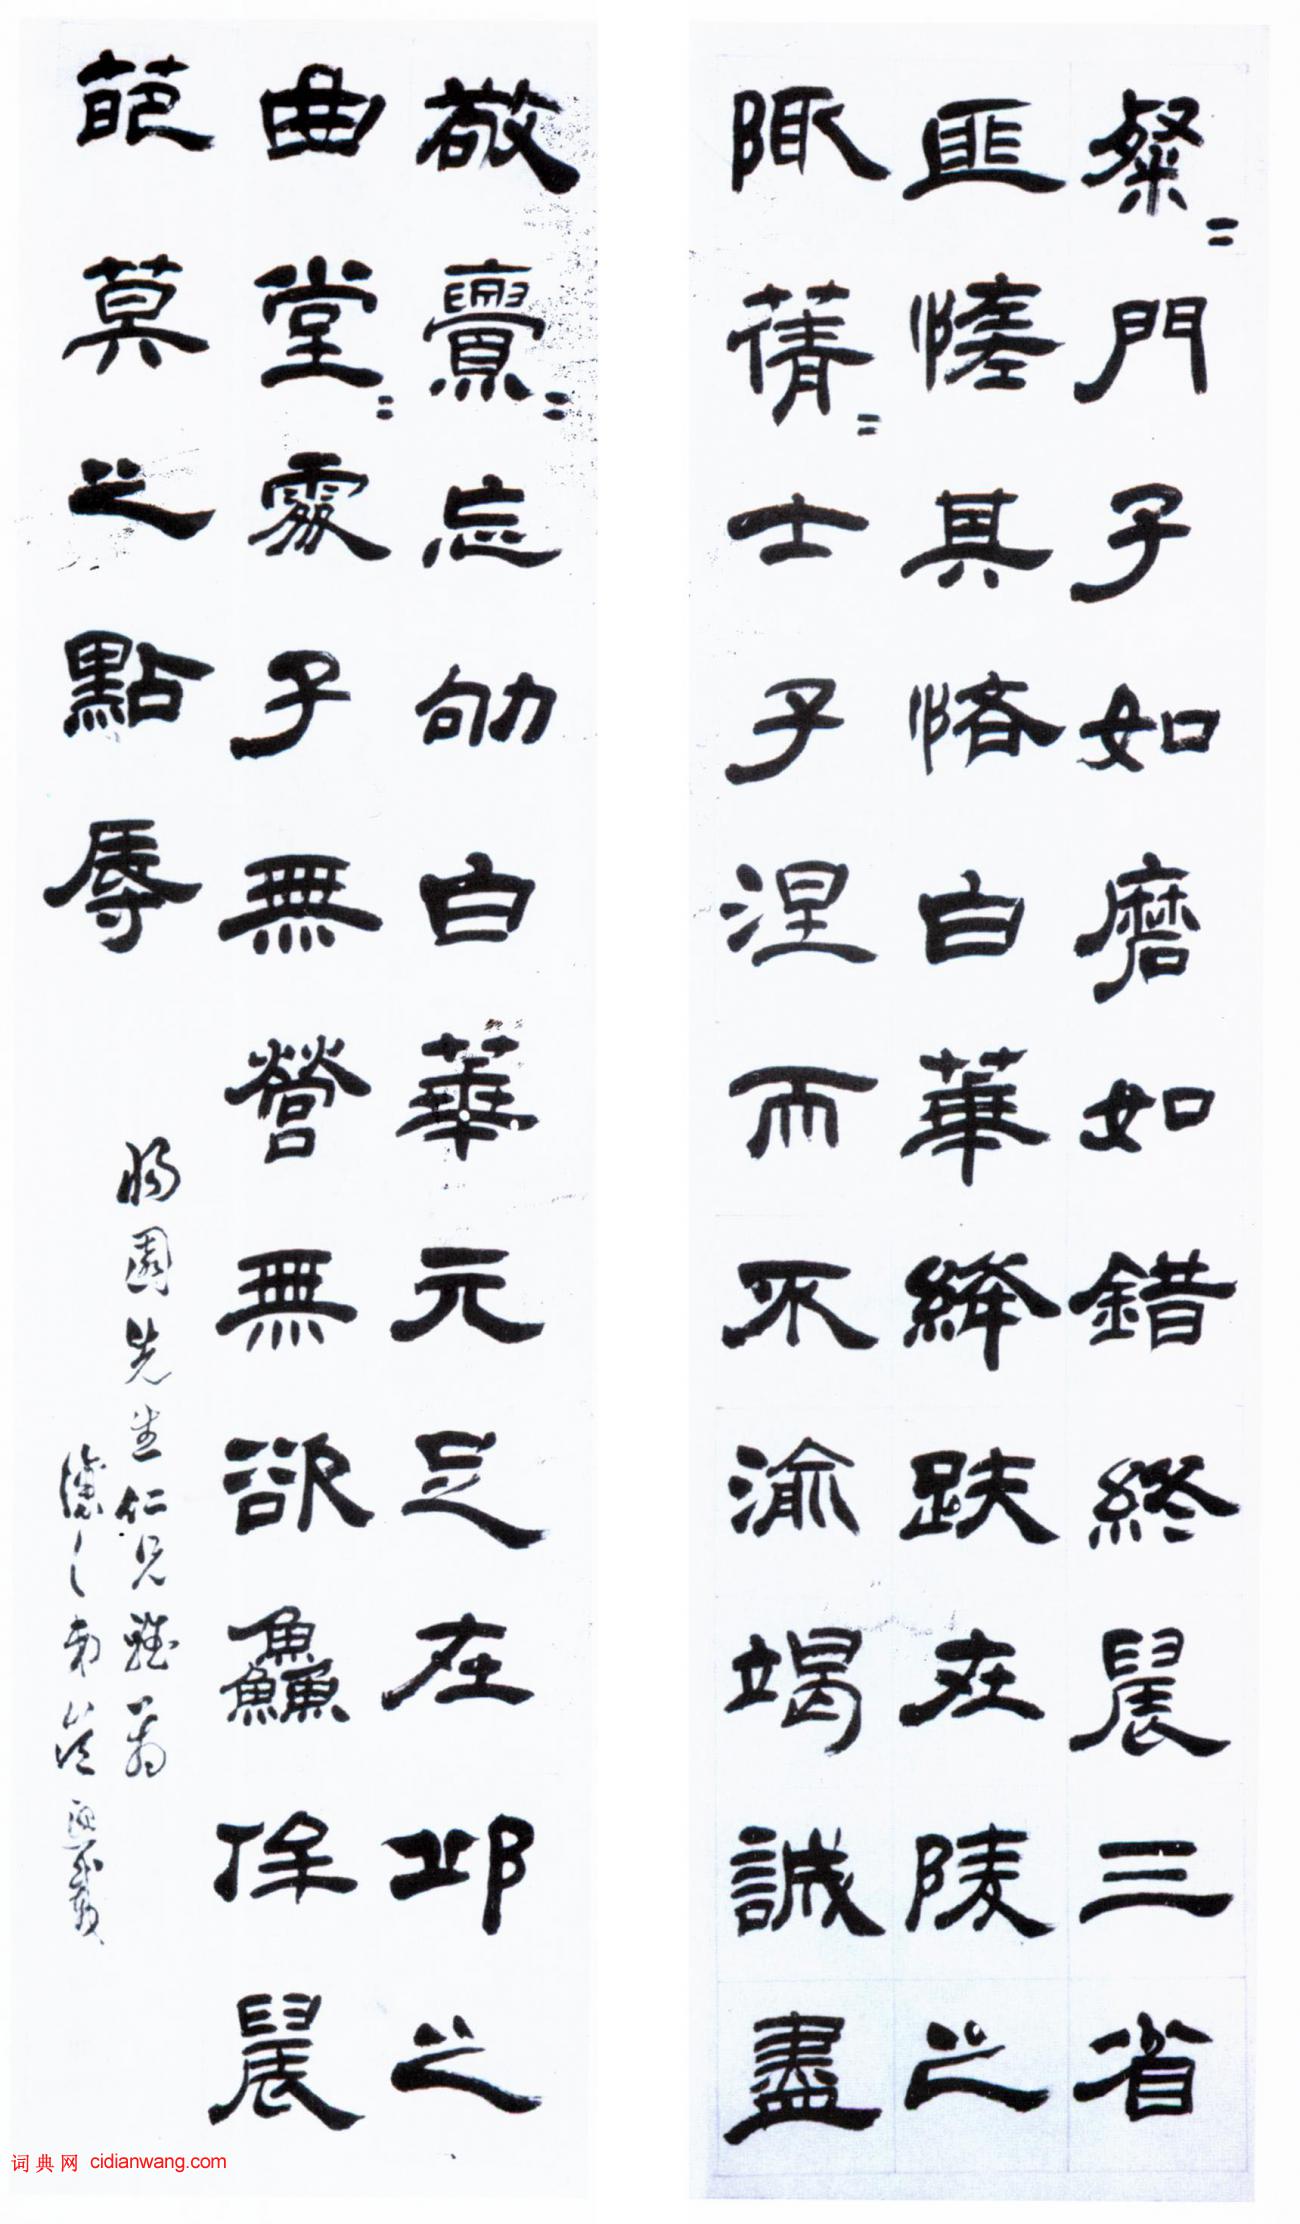 粲〻門子如磨如錯終晨三省
匪惰其恪白華絳趺在陵之
陬蒨〻士子涅而不渝竭誠盡
敬亹〻忘劬白華元足在邱之
曲堂〻處子無營無欲鱻侔晨
葩莫之點辱
園先生仁兄雅
弟
词典网 cidianwang.com